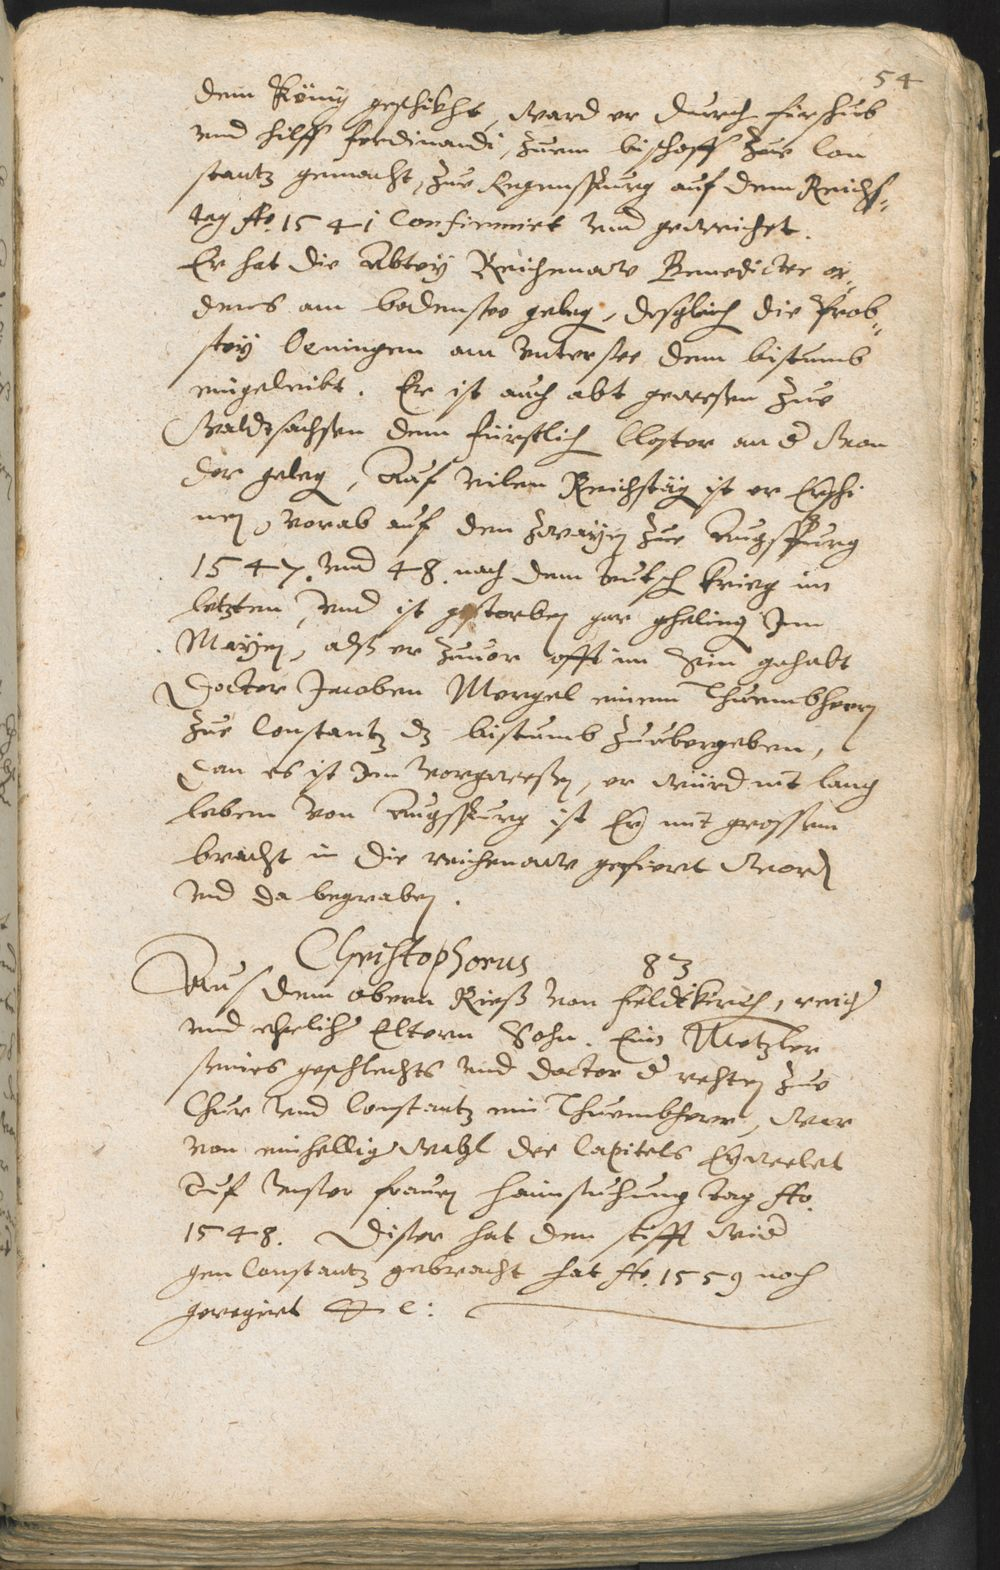 54
dem König geschikht, ward er durch fürschub
und hilff Ferdinandi, zuem bischoff zue Con
stantz gemacht, zue Regenspurg auf dem Reichs¬
tag Ao. 1541 Confirmirt und geweichet.
Er hat die Abtey Reichenaw Benedicter or¬
dens am bodensee geleg, desgleich die Prob¬
stey Oeningen am Untersee dem bistumb
eingeleibt. Er ist auch abt gewesen zue
Waldsachsen dem fürstlich Closter an d Won
der geleg, Auf vilen Reichstäg ist er Erschi
nen, vorab auf den zwayen zue Augspurg
1547. und 48. nach dem teutsch krieg im
letzten, und ist gestorben gar gheling Im
Mayen, alß er zuvor offt im Sin gehabt
Doctor Jacoben Mergel einem Thuembherrn
zue Constantz dz bistumb zuubergeben,
Dan es ist Im vorgwesen, er würd nit lang
leben von Augspurg ist Er mit grossem
bracht in die reichenaw gefiert Word
und da begraben.
Christophorus 83
Aus dem obern Rieß von Feldtkirch, reich
und ehrlich Eltern Sohn. Ein Metzler
seines geschlechts und doctor d rechten zue
Chur und Constantz ein Thuembherr, war
von einhellig Wahl des Capitels Erweelet
Auf unser frauen haimsuchung tag Ao.
1548. Diser hat den stifft wid
gen Constantz gebracht hat Ao. 1559 noch
geregiert &c: